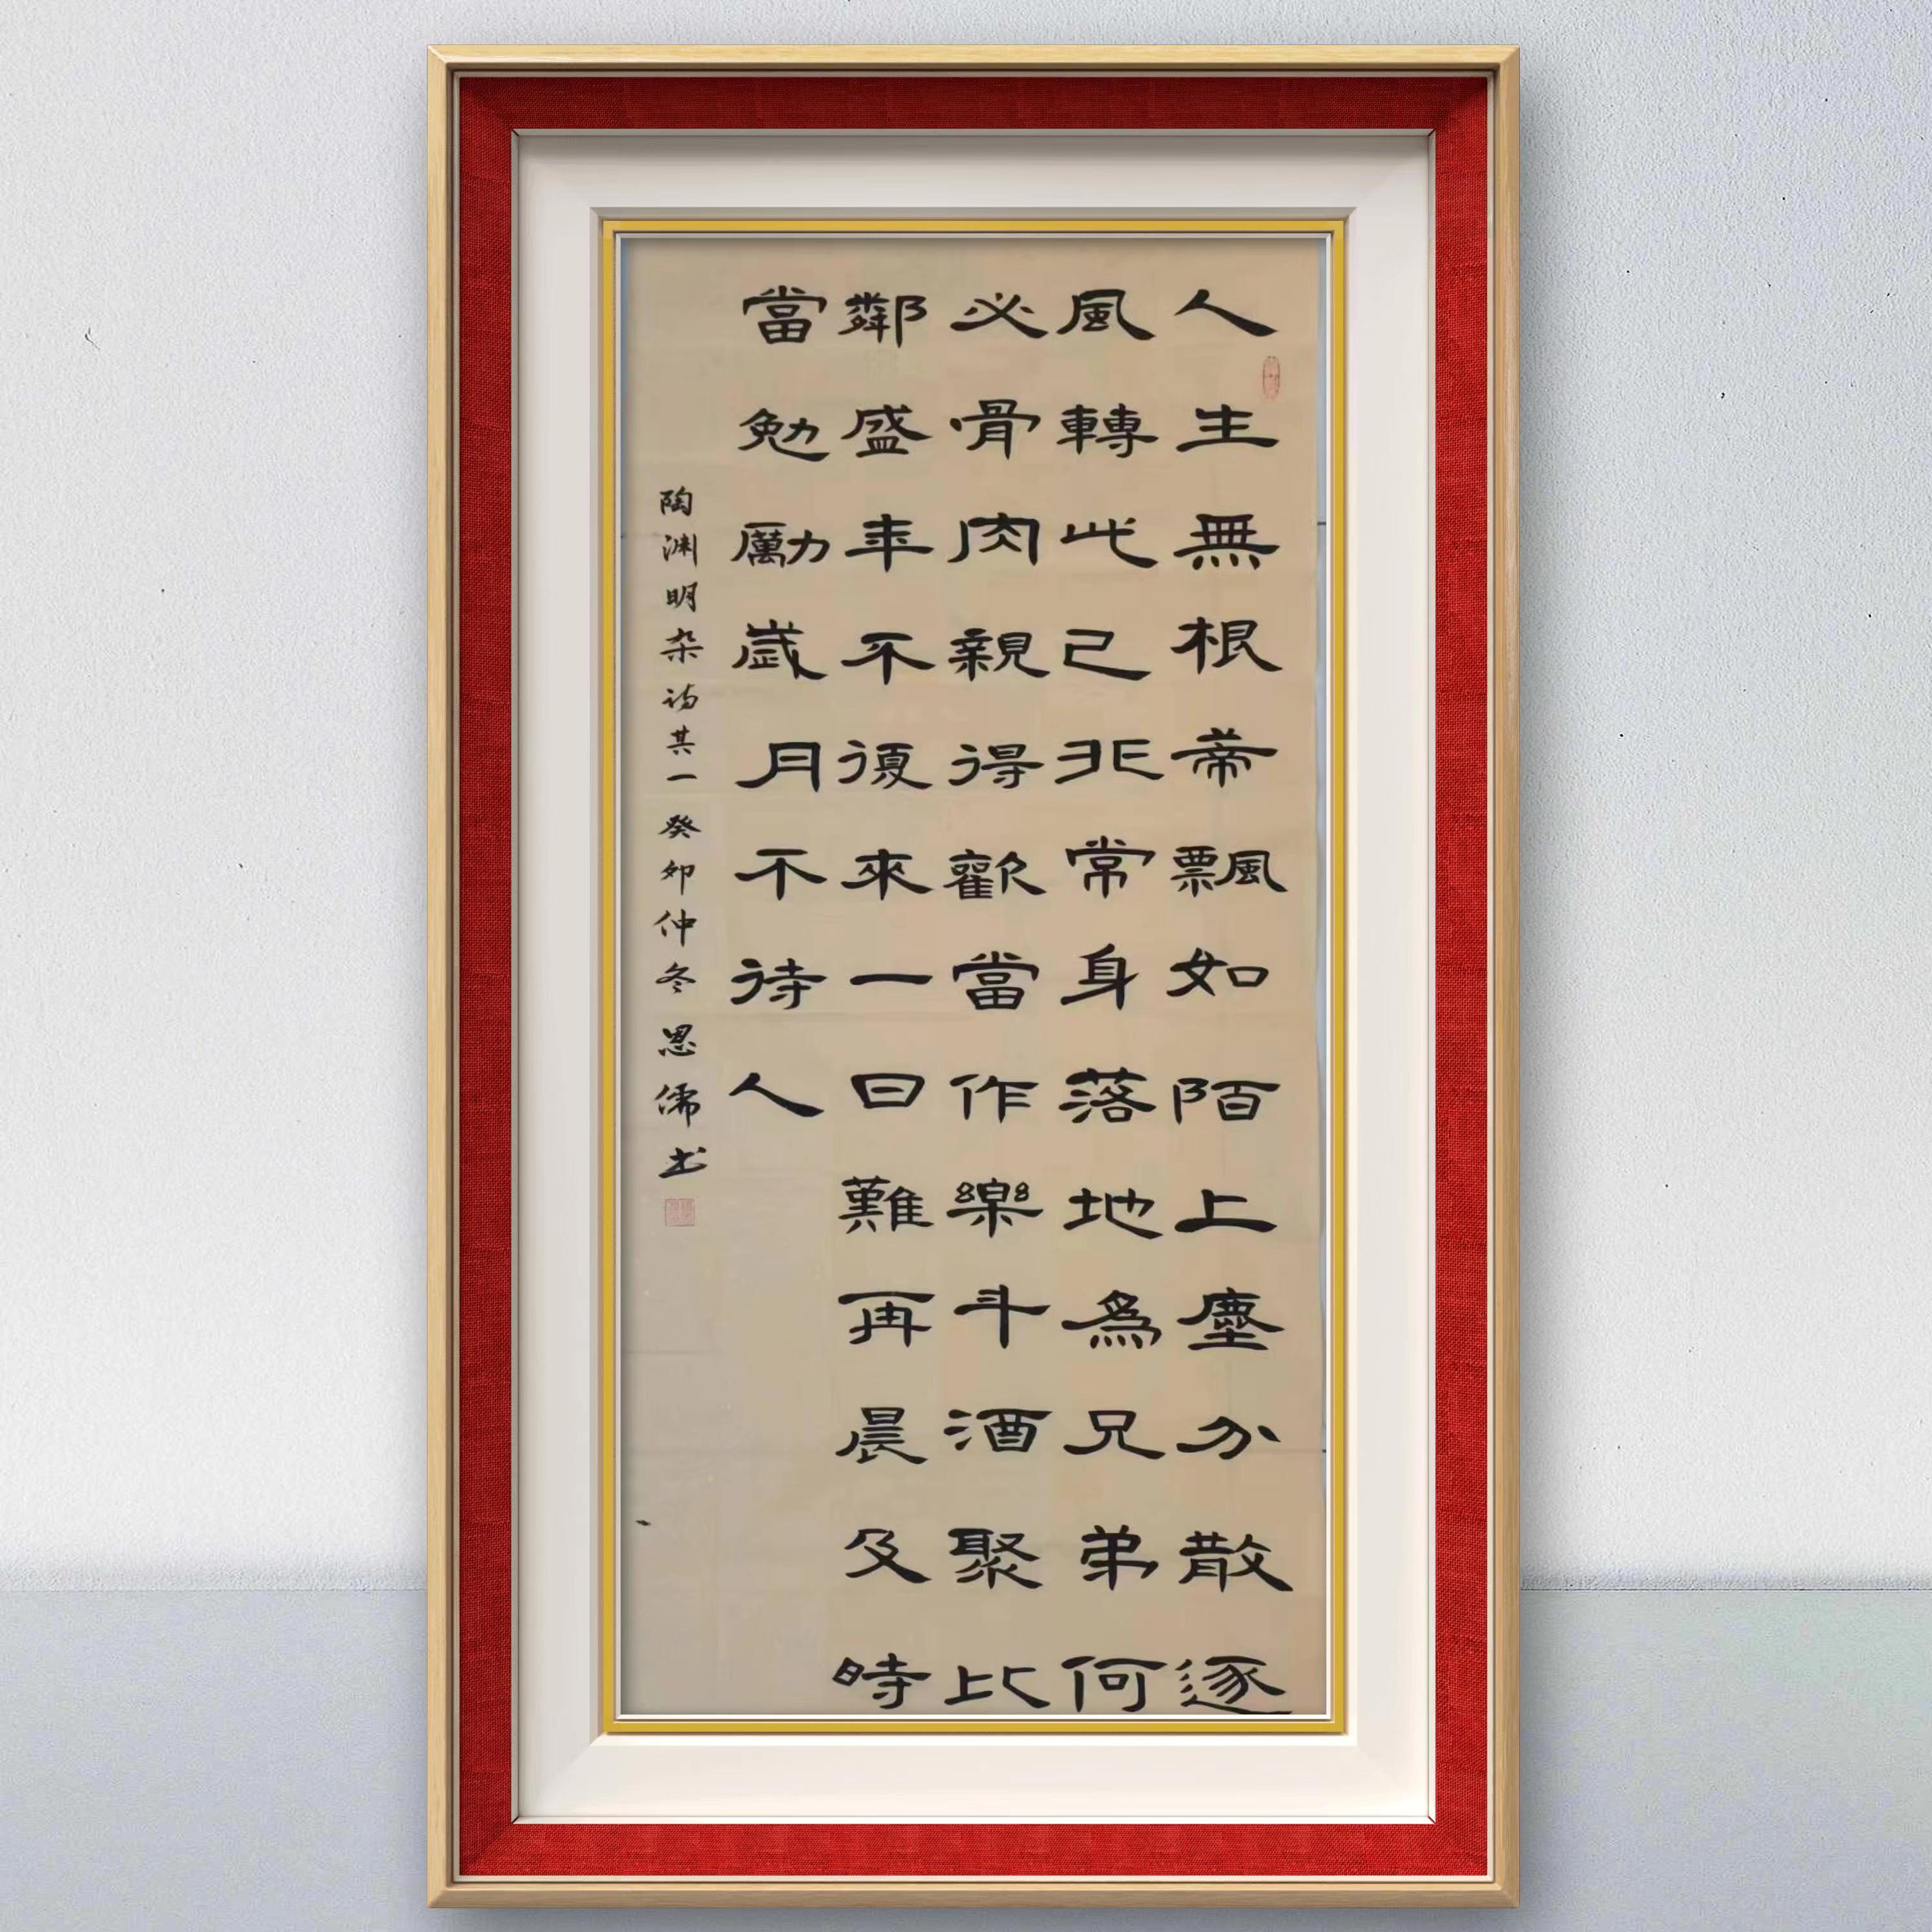 人生無根蒂飄如陌上塵分散逐
風轉此已非常身落地為兄弟何
必骨肉親得歡當作樂斗酒聚比
鄰盛年不復來一日難再晨及時
當勉勵歲月不待人
陶渊明杂诗其一癸卯仲冬思儒书